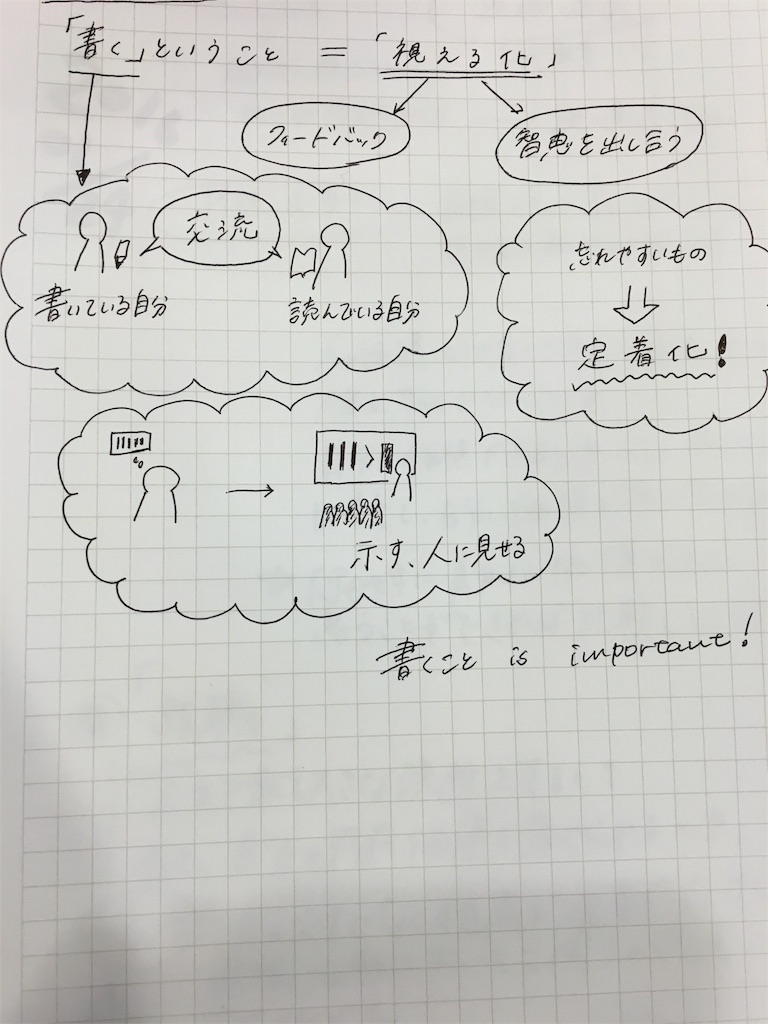 「書く」ということ = 「視える化」
フィードバック
智恵を出し合う
交流
書いている自分
読んでいる自分
忘れやすいもの
定着化!
示す、人に見せる
書くこと is important!